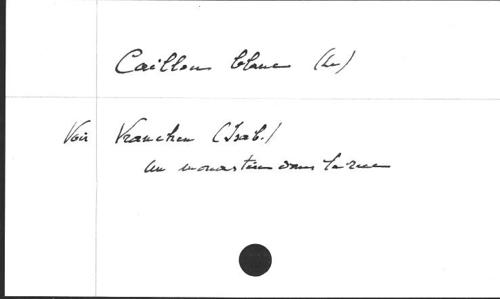 Caillou blanc (Le)
Voir Vrancken (Isab.)
Un monastère dans la rue